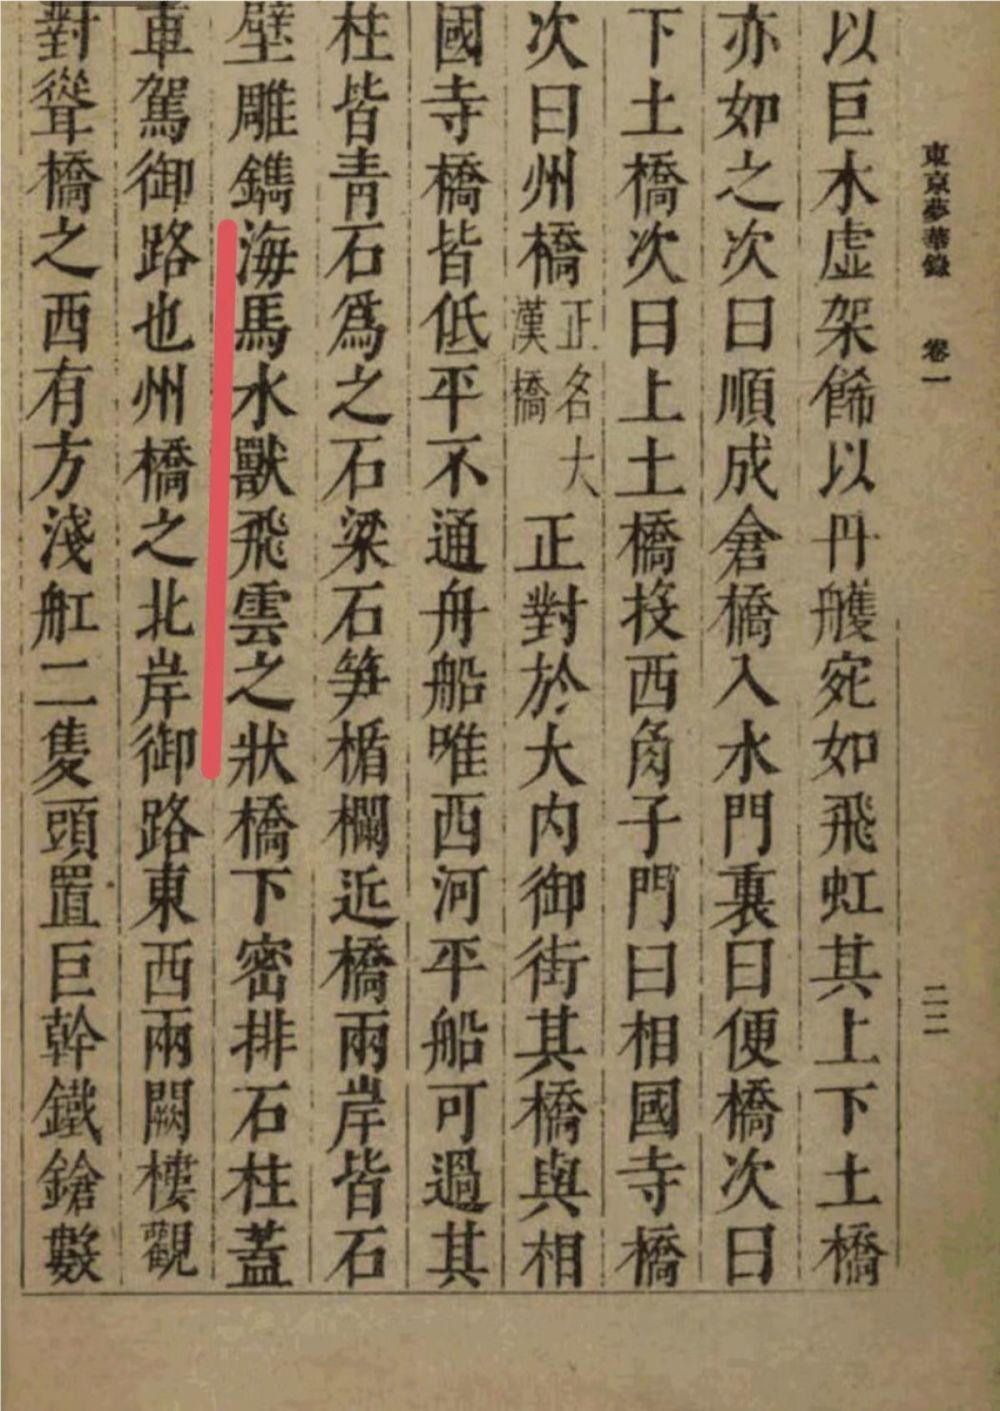 東京夢華錄　卷一
二二
以巨木虛架飾以丹艧宛如飛虹其上下土橋
亦如之次曰順成倉橋入水門裏曰便橋次曰
下土橋次曰上土橋投西角子門曰相國寺橋
次曰州橋正名大漢橋正對於大內御街其橋與相
國寺橋皆低平不通舟船唯西河平船可過其
柱皆青石為之石梁石笋楯欄近橋兩岸皆石
壁雕鐫海馬水獸飛雲之狀橋下密排石柱蓋
車駕御路也州橋之北岸御路東西兩闕樓觀
對聳橋之西有方淺舡二隻頭置巨幹鐵鎗數